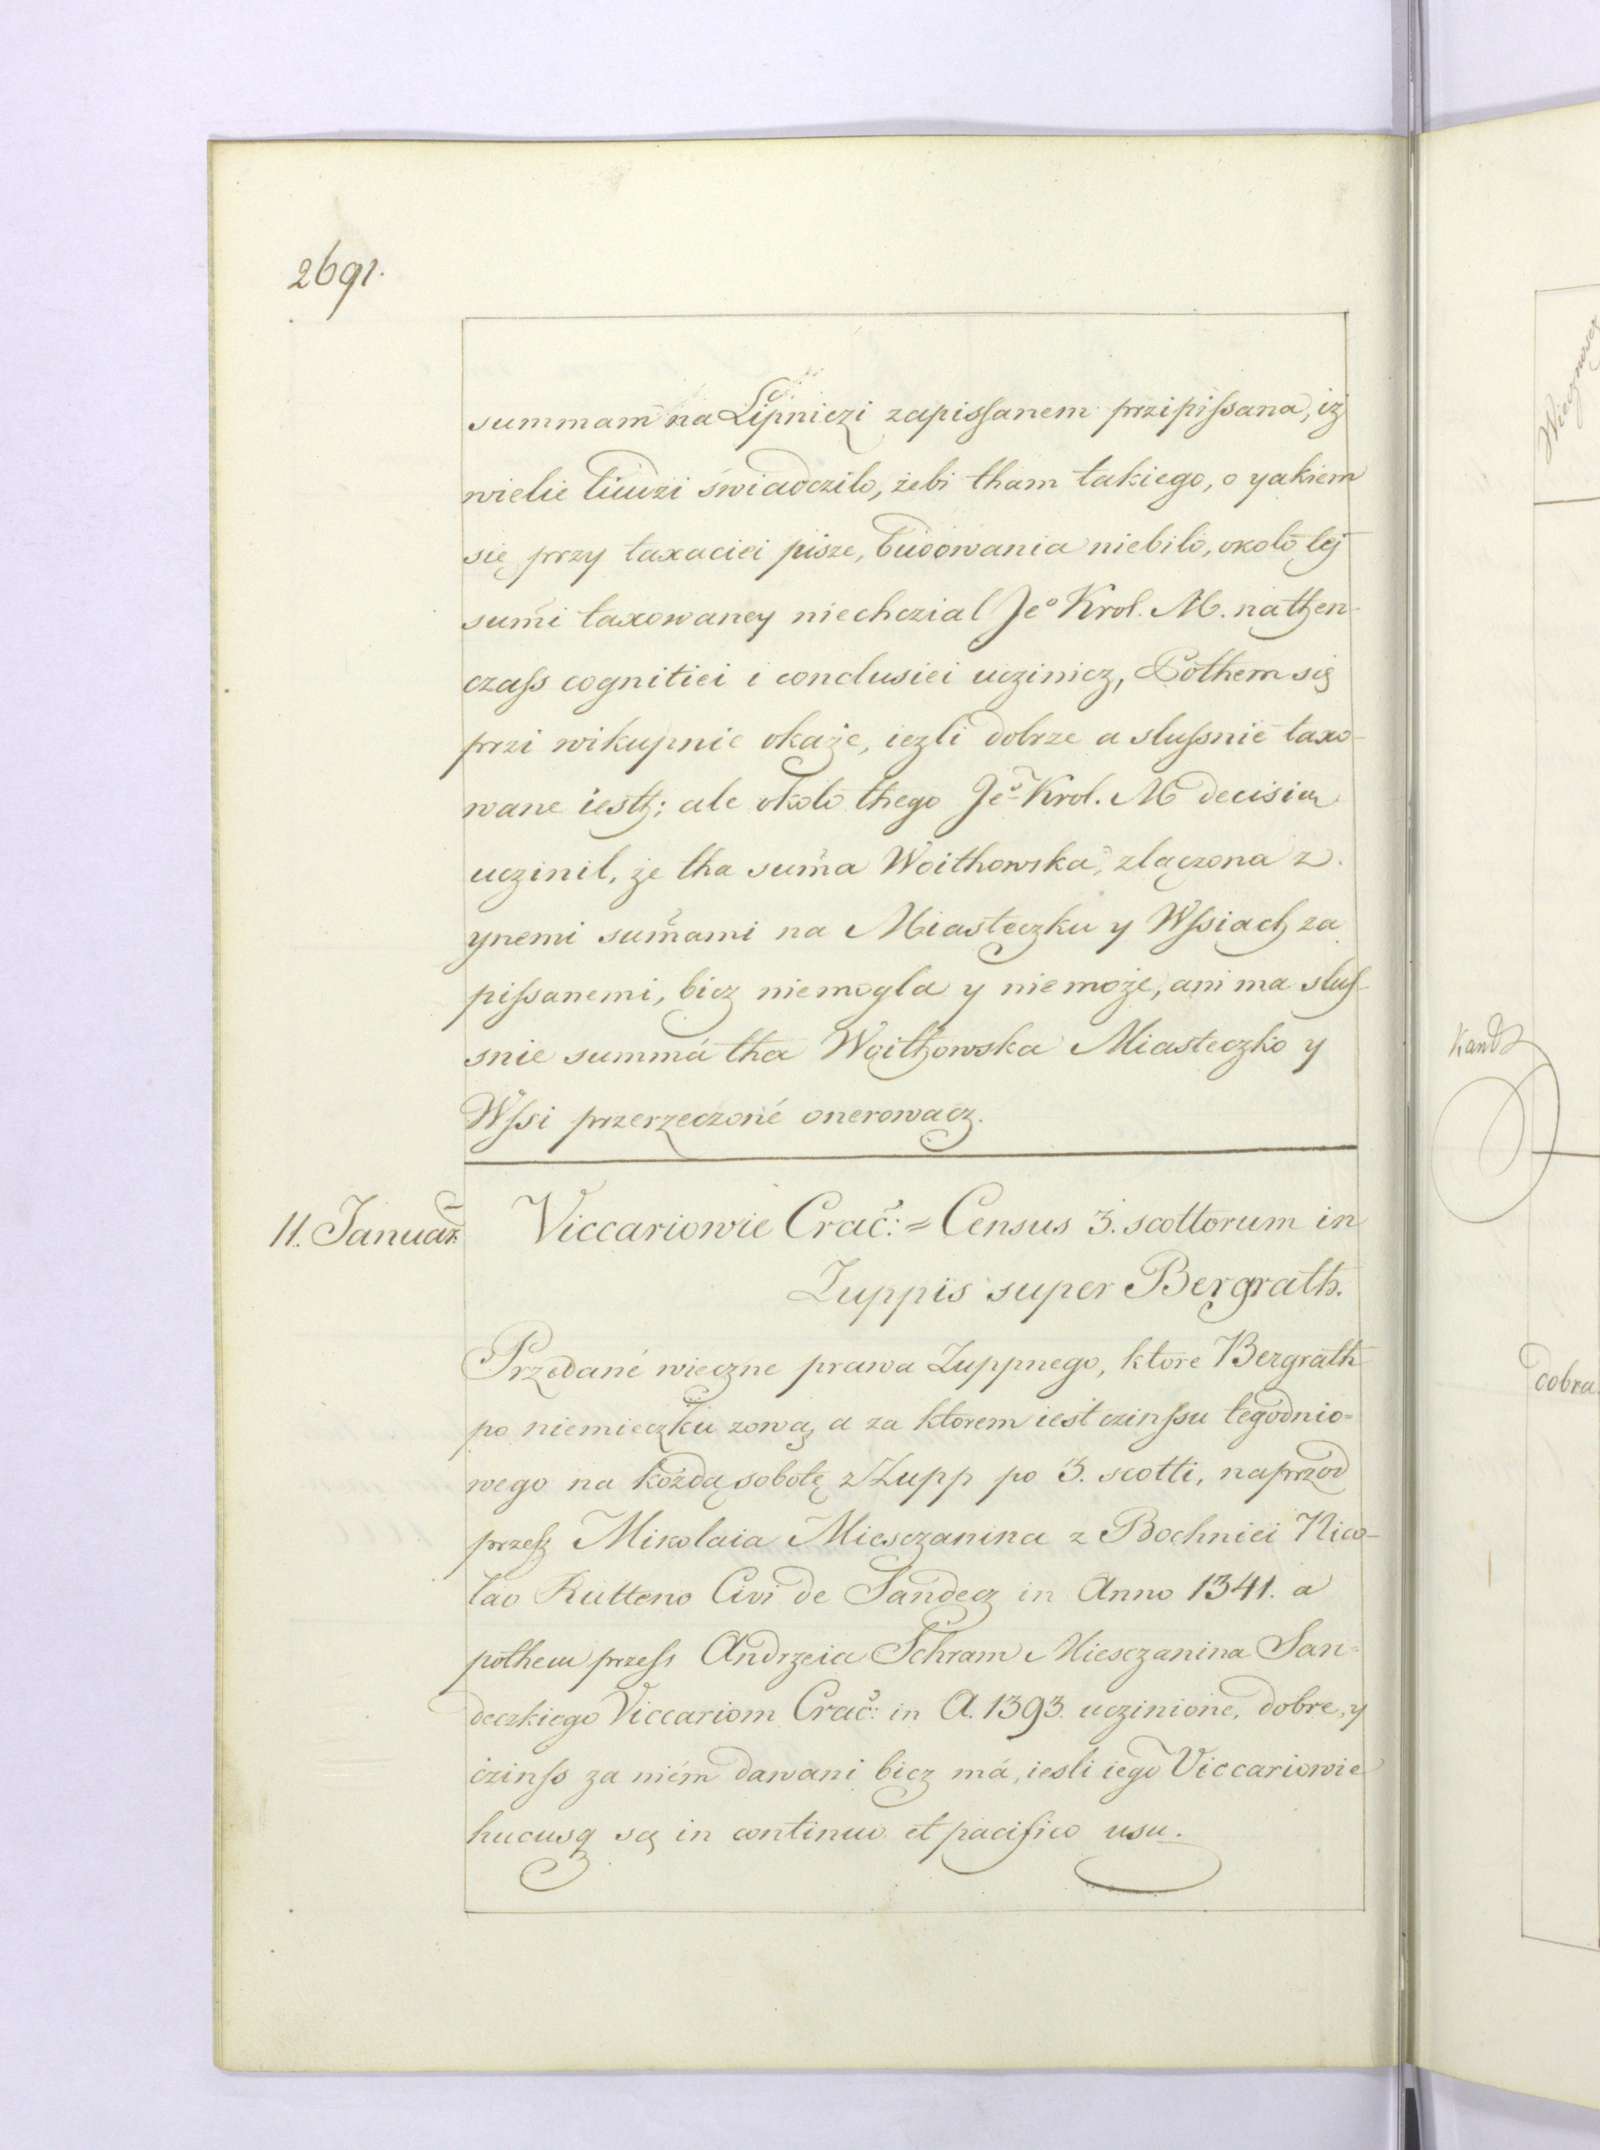 2691.
summam na Lipniczi zapissanem przipissana, iz
wielie liudzi świadczilo, żebi tham takiego, o yakiem
się przy taxaciei pisze, budowania niebiło, około tej
sum̃i taxowaney niechczial Jeº Krol. M. nathen-
czass cognitiei i conclusiei uczinicz, Pothem się
przi wikupnie okaże, iezli dobrze a slussnie taxo-
wane iesth; ale około thego Jeº Krol. M decisią
uczinil, że tha sum̃a Woithowska, zlączona z
ynemi sum̃ami na Miasteczku y Wssiach za
pissanemi, bicz niemogla y niemoże, ani ma slus-
snie summá tha Woithowska Miasteczko y
Wssi przerzeczoné onerowacz.
11. Januar.
Viccariowie Crac̃: = Census 3. scottorum in
Zuppis super Bergrath.
Przedané wieczne prawa Zuppnego, ktore Bergrath
po niemieczku zową, a za ktorem iest czinssu tegodnio=
wego na kożdą sobotę z Zupp po 3. scotti, naprzod
przess Mikolaia Miesczanina z Bochniei Nico-
lao Rutteno Civi de Sandecz in Anno 1341. a
pothem przess Andrzeia Schram Miesczanina San=
deczkiego Viccariom Crac̃: in A. 1393. uczinioné, dobre, y
czinss za niém dawani bicz má, iesli iego Viccariowie
hucusq są in continuo et pacifico usu.
dobra